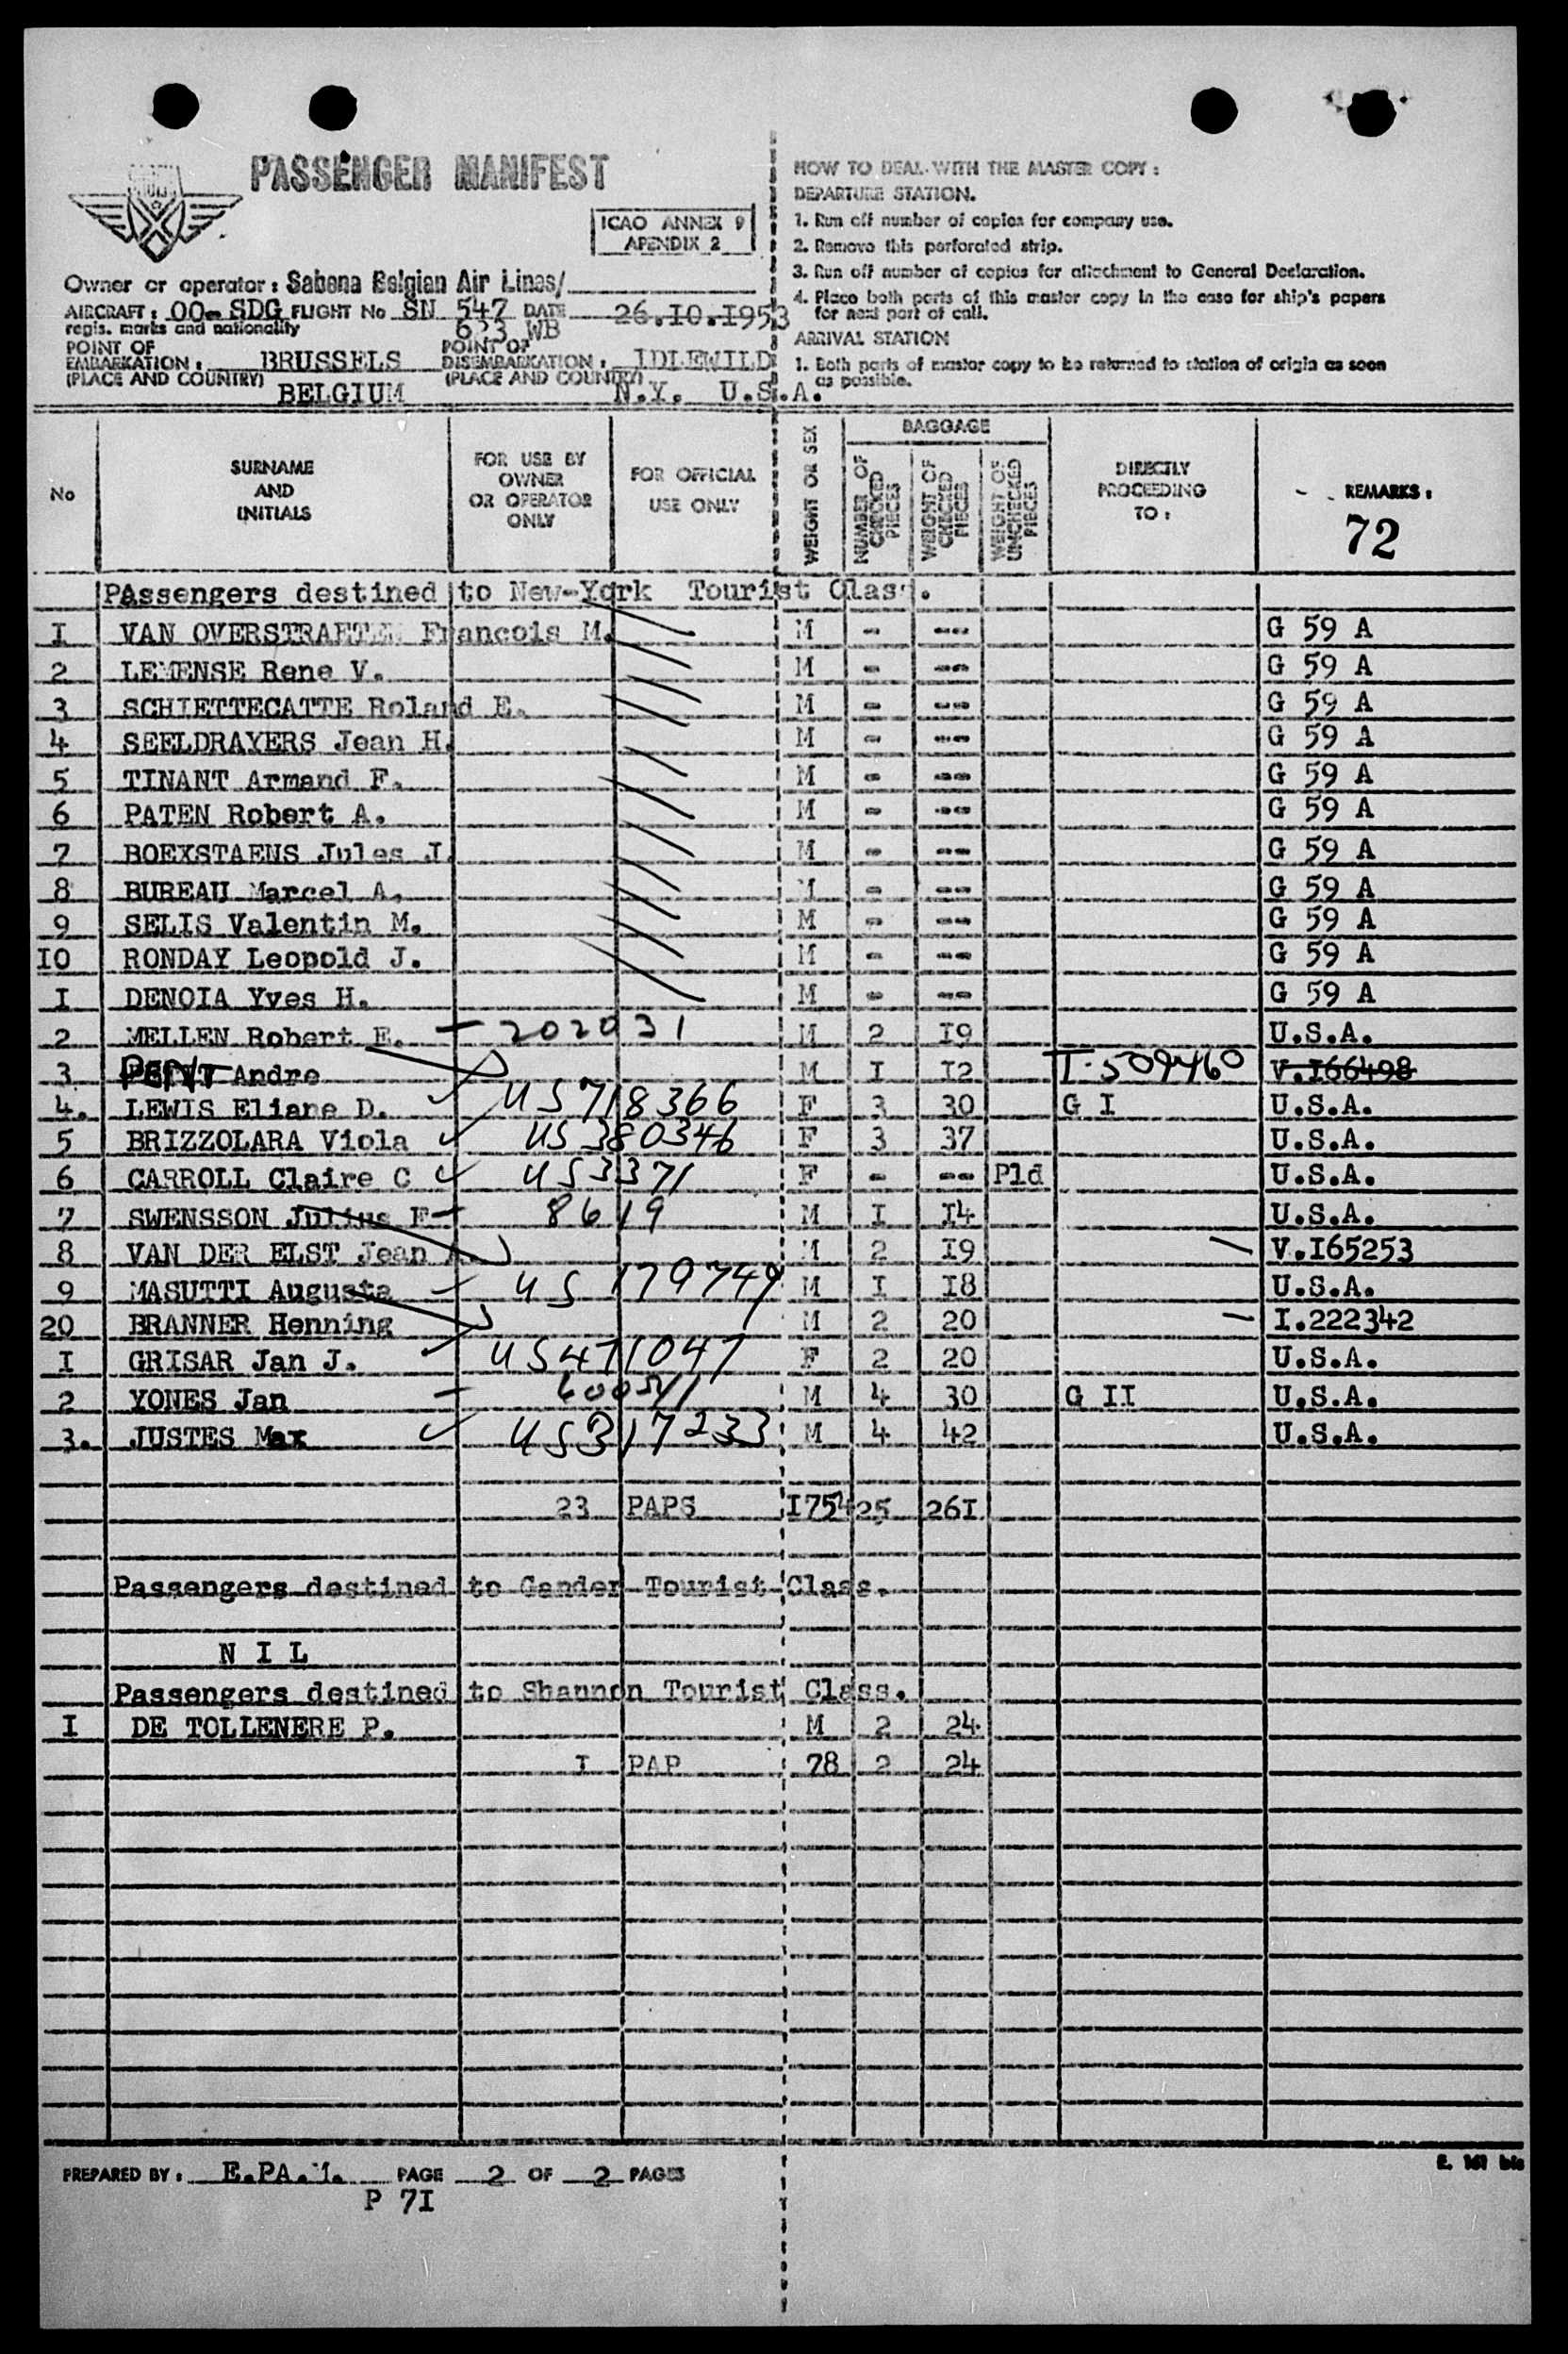 PASSENGER MANIFEST
ICAO ANNEX 9
APENDIX 2
Owner or operator: Sabena Belgian Air Lines/
AIRCRAFT: OO-SDG FLIGHT No SN 547 DATE 26.IO.I953
regis. marks and nationality 623 WB
POINT OF EMBARKATION: BRUSSELS POINT OF DISEMBARKATION: IDLEWILD
(PLACE AND COUNTRY) BELGIUM (PLACE AND COUNTRY) N.Y. U.S.A.
HOW TO DEAL WITH THE MASTER COPY:
DEPARTURE STATION.
1. Run off number of copies for company use.
2. Remove this perforated strip.
3. Run off number of copies for attachment to General Declaration.
4. Place both parts of this master copy in the case for ship's papers
for next port of call.
ARRIVAL STATION
1. Both parts of master copy to be returned to station of origin as soon
as possible.
No
SURNAME
AND
INITIALS
FOR USE BY
OWNER
OR OPERATOR
ONLY
FOR OFFICIAL
USE ONLY
WEIGHT OR SEX
BAGGAGE
NUMBER OF CHECKED PIECES
WEIGHT OF CHECKED PIECES
WEIGHT OF UNCHECKED PIECES
DIRECTLY
PROCEEDING
TO:
REMARKS:
72
PAssengers destined to New-York Tourist Clas.
I VAN OVERSTRAETEN Francois M. M - --- G 59 A
2 LEMENSE Rene V. M - --- G 59 A
3 SCHIETTECATTE Roland E. M - --- G 59 A
4 SEELDRAYERS Jean H. M - --- G 59 A
5 TINANT Armand F. M - --- G 59 A
6 PATEN Robert A. M - --- G 59 A
7 BOEXSTAENS Jules J. M - --- G 59 A
8 BUREAU Marcel A. M - --- G 59 A
9 SELIS Valentin M. M - --- G 59 A
IO RONDAY Leopold J. M - --- G 59 A
I DENOIA Yves H. M - --- G 59 A
2 MELLEN Robert E. 202031 M 2 I9 U.S.A.
3 PENT Andre M I I2 T-509460 V.I66498
4. LEWIS Eliane D. US718366 F 3 30 G I U.S.A.
5 BRIZZOLARA Viola US380346 F 3 37 U.S.A.
6 CARROLL Claire C US3371 F - -- Pld U.S.A.
7 SWENSSON Julius F 8619 M I I4 U.S.A.
8 VAN DER ELST Jean A. M 2 I9 V.I65253
9 MASUTTI Augusta US 179749 M I I8 U.S.A.
20 BRANNER Henning M 2 20 I.222342
I GRISAR Jan J. US471047 F 2 20 U.S.A.
2 YONES Jan 600541 M 4 30 G II U.S.A.
3. JUSTES Max US317233 M 4 42 U.S.A.
23 PAPS I754 25 26I
Passengers destined to Gander Tourist Class.
N I L
Passengers destined to Shannon Tourist Class.
I DE TOLLENERE P. M 2 24
I PAP 78 2 24
PREPARED BY: E.PA. PAGE 2 OF 2 PAGES
P 7I
E. 161 bis